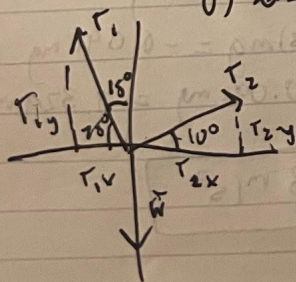 T₁
15°
T₂
T₁y
10°
T₂y
T₁x
T₂x
W